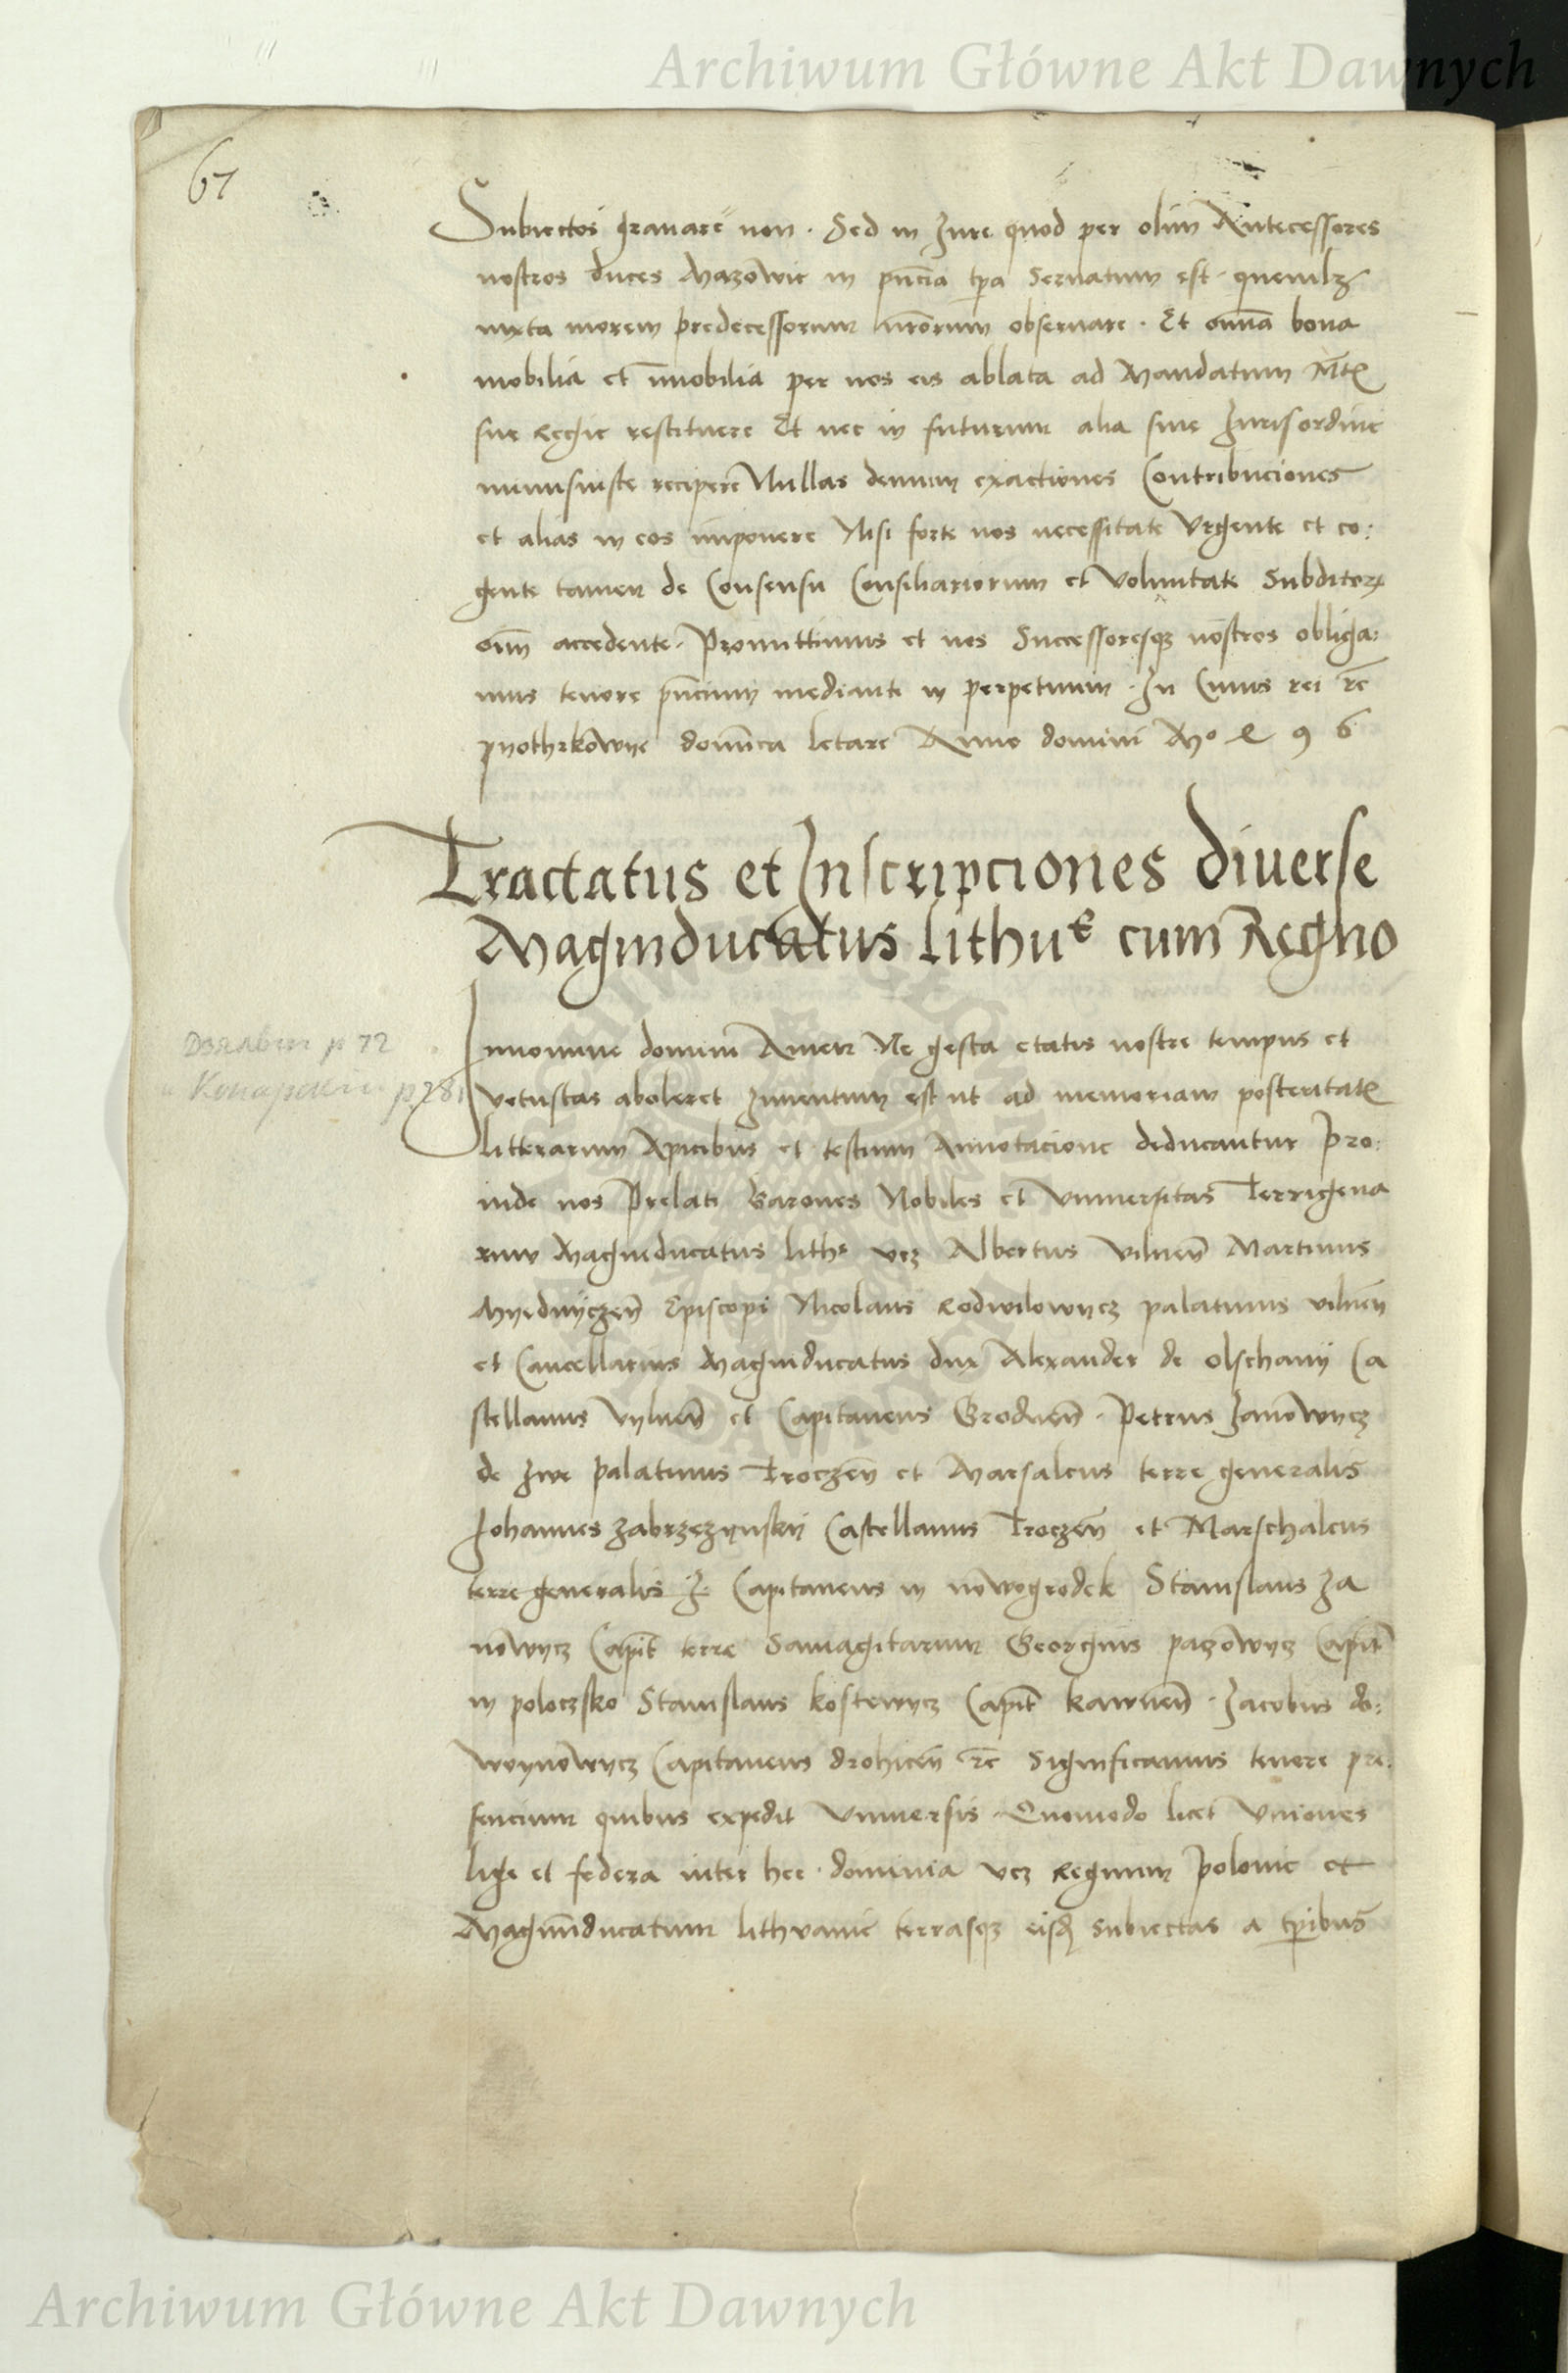 Archiwum Główne Akt Dawnych
67
Subiectos gravare non. Sed in Jure quod per olim Antecessores
nostros duces Mazowie in pńcia tpa servatum est. quemlz
iuxta morem predecessorum nrorum observare. Et omnia bona
mobilia et immobilia per nos eis ablata ad Mandatum Mtis
sue Regie restituere Et nec in futurum alia sine Juris ordine
iniuste recipere Nullas denum exactiones Contribuciones
et alias in eos imponere Nisi forte nos necessitate Urgente et co:
gente tamen de Consensu Consiliariorum et Voluntate Subditorum
oim accedente. Promittimus et nos Successoresqz nostros obliga:
mus tenore pńcium mediante in perpetuum. In Cuius rei rc
pyothrkowye domica letare Anno domini Mo 96
Tractatus et Inscripciones diverse
Magniducatus Lithue cum Regno
Дзялын p 72
и Конарский p 281
Innomine domini Amen Ne gesta etatis nostre tempus et
vetustas aboleret Inventum est ut ad memoriam posteritatis
litterarum Apicibus et testium Annotacione deducantur Pro:
inde nos Prelati Barones Nobiles et Universitas Terrigena
rum Magniducatus lithe vcz Albertus Vilnen Martinus
Myednyczen Episcopi Nicolaus Rodivilowycz palatinus vilnen
et Cancellarius Magniducatus dux Alexander de olschany Ca
stellanus Vylnen et Capitaneus Grodnen. Petrus Janowycz
de Jwe palatinus Troczen et Marsalcus terre generalis
Johannes Zabrzezynsky Castellanus Troczen et Marschalcus
terre generalis Capitaneus in nowogrodek Stanislaus Ja
nowycz Capit terre Samagitarum Georgius paczowycz Capit
in poloczsko Stanislaus kostewycz Capit kawnen. Jacobus do:
woynowycz Capitaneus drohicen rc Significamus tenore pre:
sencium quibus expedit Universis. Quomodo licet Uniones
lige et federa inter hec dominia vcz Regnum Polonie et
Magnumducatum lithvanie terrasqz eisd subiectas a tpibus
Archiwum Główne Akt Dawnych